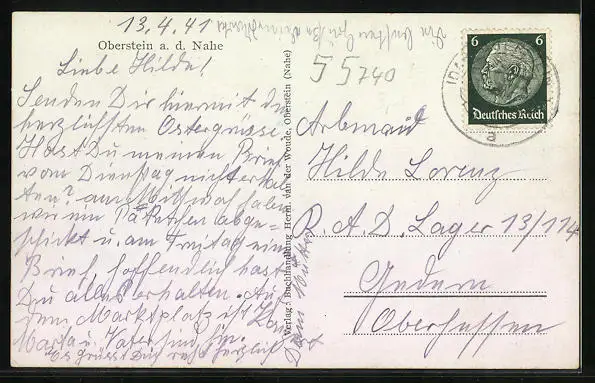 13.4.41
Oberstein a. d. Nahe
Liebe Hilde!
Senden Dir hiermit die
herzlichsten Ostergrüsse.
Hast Du meinen Brief
vom Dienstag nicht erhal
ten? am Mittwoch haben
wir ein Päckchen abge=
schickt u. am Freitag ein
Brief, hoffendlich hast
Du alles erhalten. Auf
dem Marktplatz ist
Marta u. Vater sind hin.
Es grüsst Dich recht herzlich
Dein
Verlag: Buchhandlung Herm. van der Woude, Oberstein (Nahe)
55740
6 6
Deutsches Reich
Arbmaid
Hilde Lorenz
R. A. D. Lager 13/114
Gedern
Oberhessen